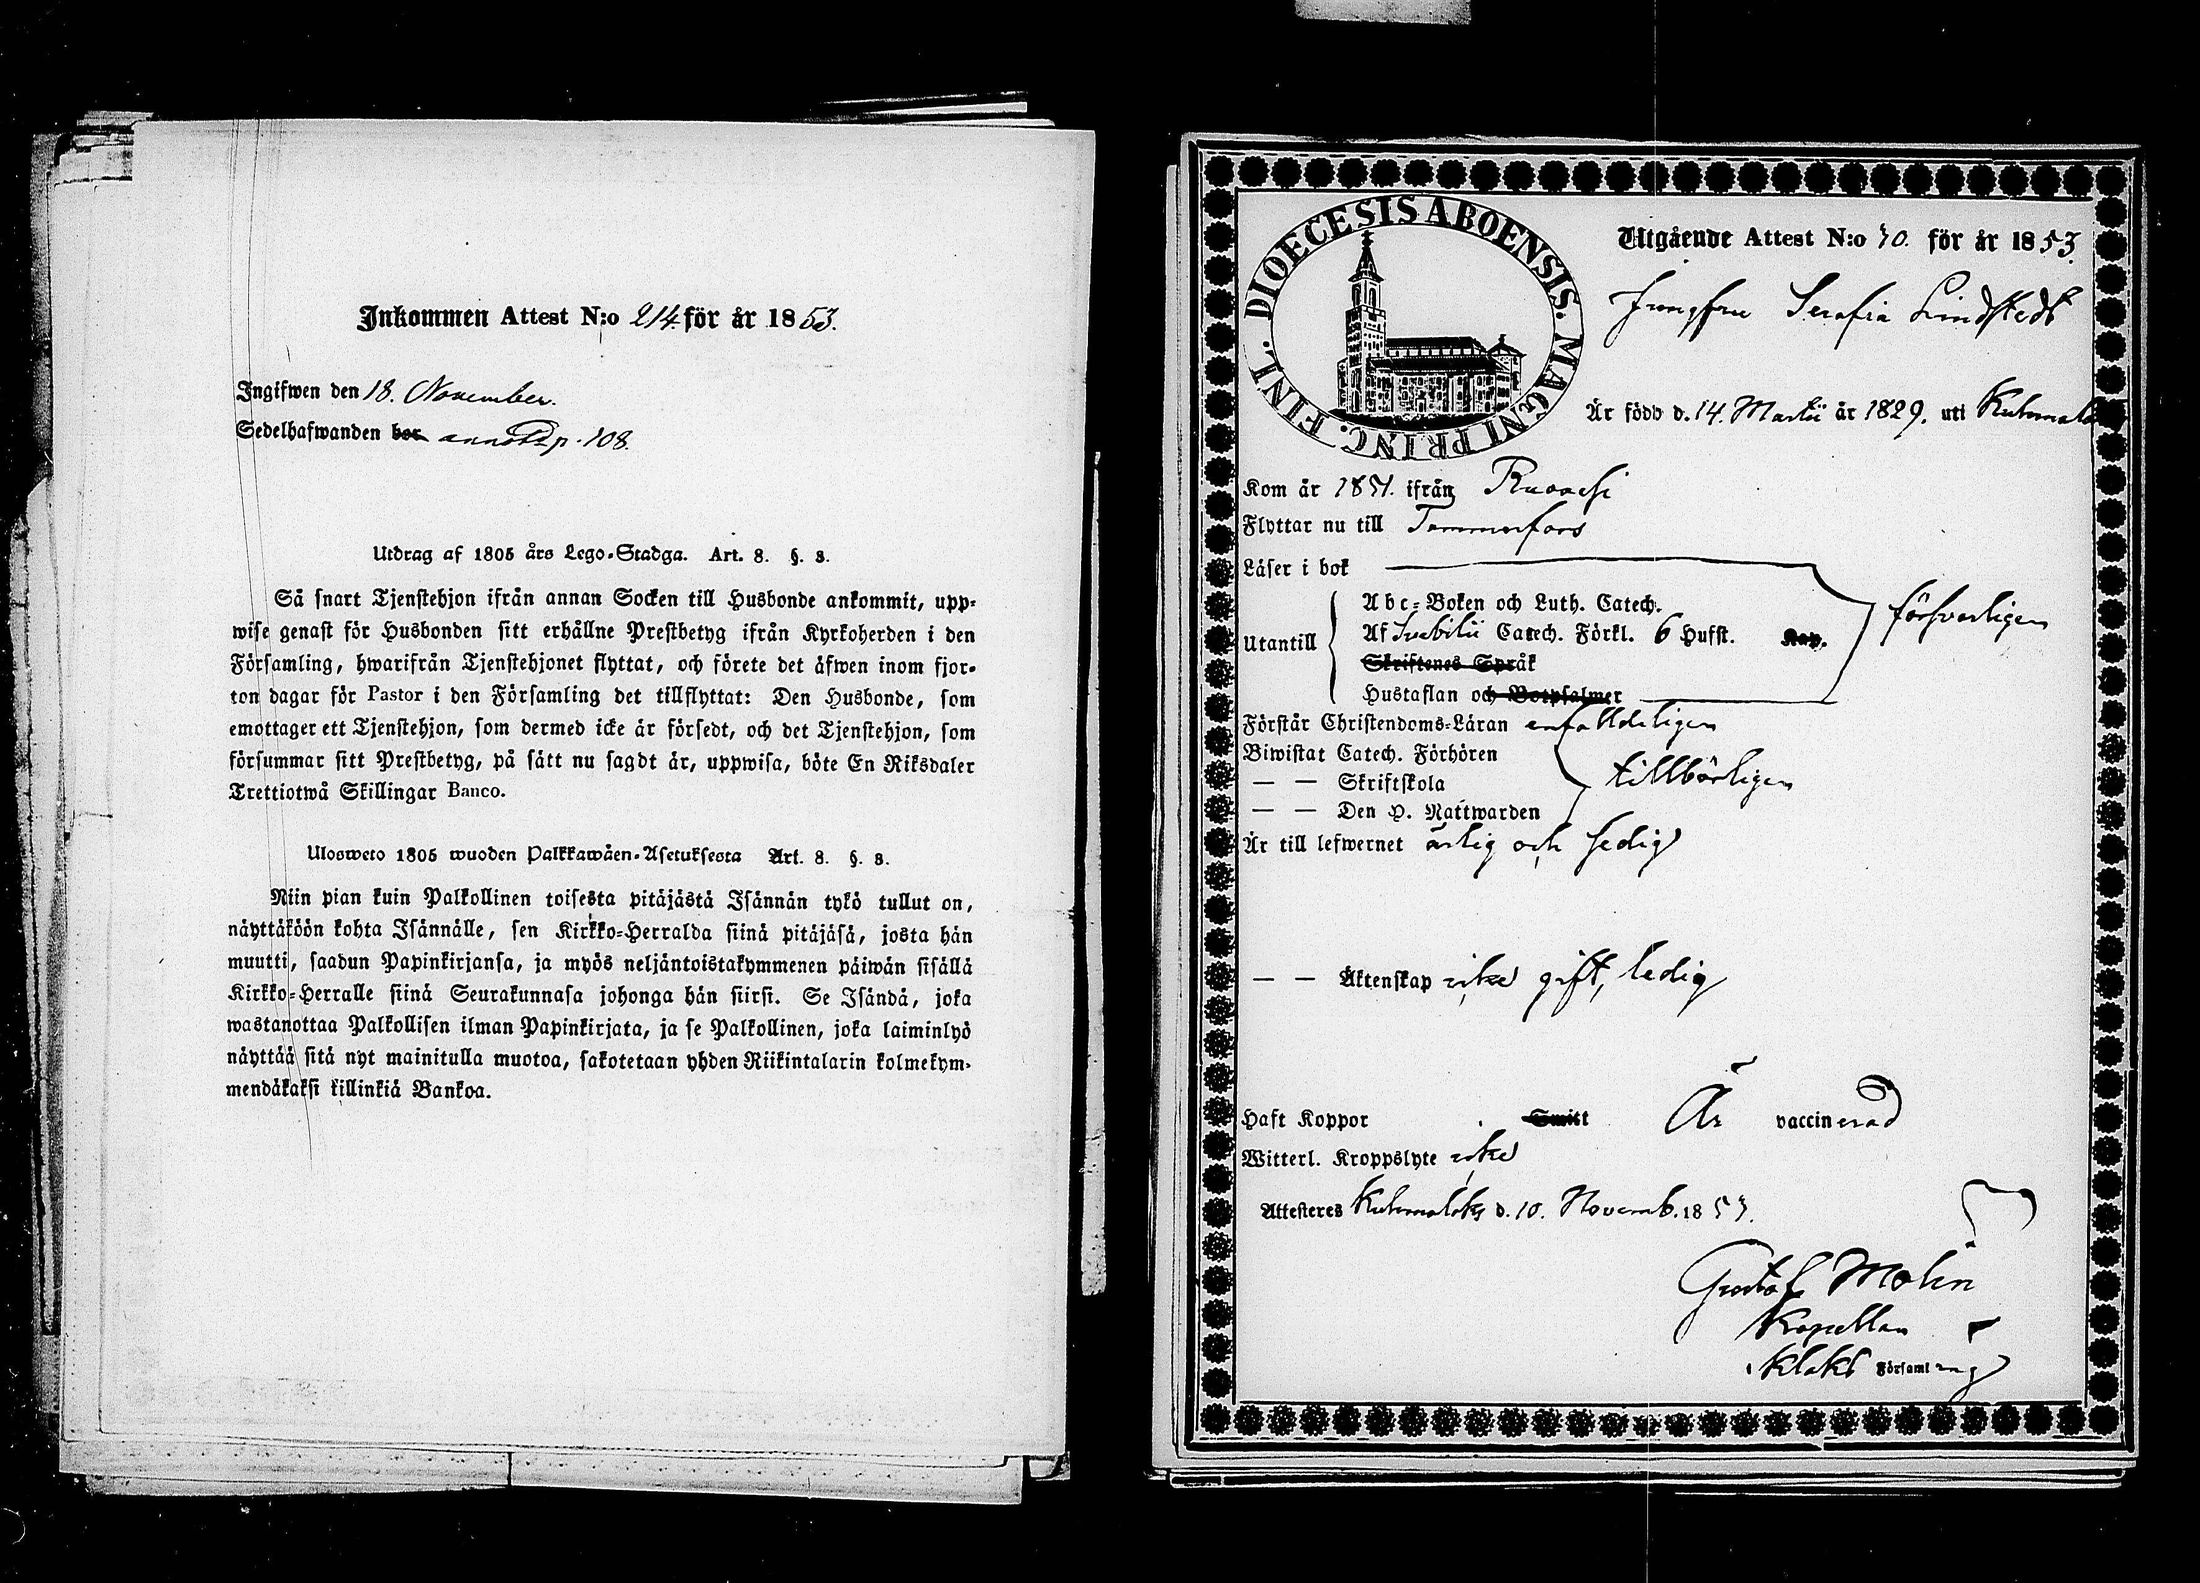 Inkommen Attest N:o 214 för år 1853.
Ingifwen den 18. November.
Sedelhafwanden bor annoterad p. 108.
Utdrag af 1805 års Lego-Stadga. Art. 8. §. 8.
Så snart Tjenstehjon ifrån annan Socken till Husbonde ankommit, upp-
wise genast för Husbonden sitt erhållne Prestbetyg ifrån Kyrkoherden i den
Församling, hwarifrån Tjenstehjonet flyttat, och förete det äfwen inom fjor-
ton dagar för Pastor i den Församling det tillflyttat: Den Husbonde, som
emottager ett Tjenstehjon, som dermed icke är försedt, och det Tjenstehjon, som
försummar sitt Prestbetyg, på sätt nu sagdt är, uppwisa, böte En Riksdaler
Trettiotwå Skillingar Banco.
Ulosweto 1805 wuoden Palkkawäen-Asetuksesta Art. 8. §. 8.
Niin pian kuin Palkollinen toisesta pitäjästä Isännän tykö tullut on,
näyttäköön kohta Isännälle, sen Kirkko-Herralda siinä pitäjäsä, josta hän
muutti, saadun Papinkirjansa, ja myös neljäntoistakymmenen päiwän sisällä
Kirkko-Herralle siinä Seurakunnasa johonga hän siirsi. Se Isändä, joka
wastanottaa Palkollisen ilman Papinkirjata, ja se Palkollinen, joka laiminlyö
näyttää sitä nyt mainitulla muotoa, sakotetaan yhden Riikintalarin kolmekym-
mendäkaksi killinkiä Bankoa.
DIOECESIS ABOENSIS. MAGNI PRINC. FINL.
Utgående Attest N:o 70. för år 1853.
Jungfru Serafia Lindstedt
Är född d. 14. Martii år 1829. uti Kuhmalaks
Kom år 1851. ifrån Ruovesi
Flyttar nu till Tammerfors
Läser i bok
Utantill
Abc-Boken och Luth. Catech.
Af Svebilii Catech. Förkl. 6 Hufst. Kap.
Skriftenes Språk
Hustaflan och Botpsalmer
försvarligen
Förstår Christendoms-Läran enfalldeligen
Biwistat Catech. Förhören
— — Skriftskola
— — Den H. Nattwarden
tillbörligen
Är till lefwernet ärlig och sedig
— — Äktenskap icke gift, ledig
Haft Koppor Smitt Är vaccinerad
Witterl. Kroppslyte icke
Attesteres Kuhmalaks d. 10. Novemb. 1853.
Gustaf Molin
Kapellan
i Klaks Församling